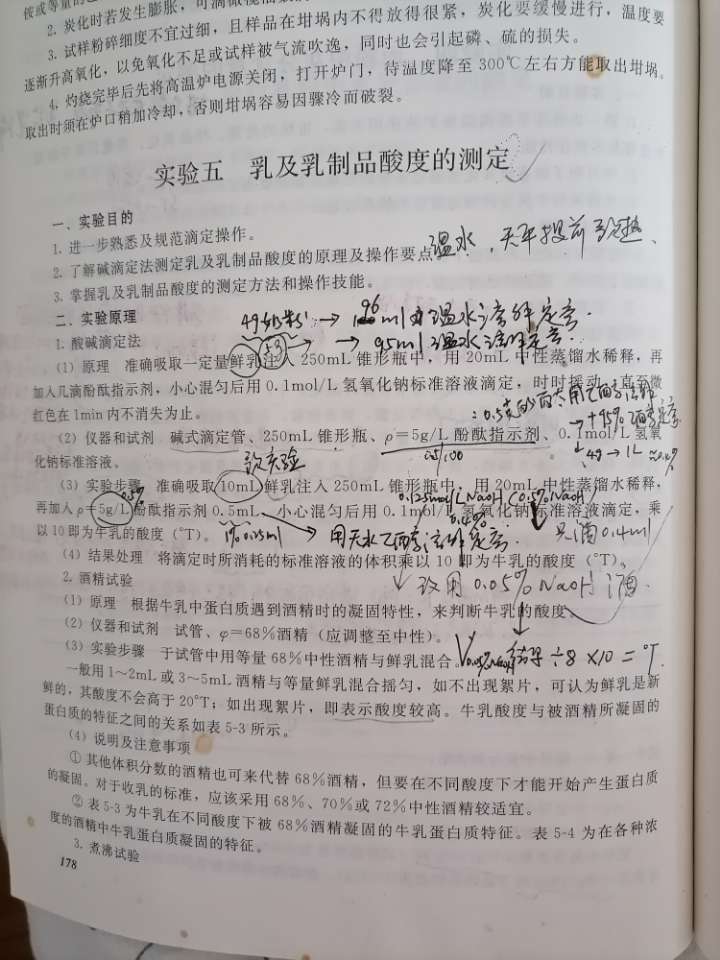 2. 炭化时若发生膨胀，可滴橄榄油数
3. 试样粉碎细度不宜过细，且样品在坩埚内不得放得很紧，炭化要缓慢进行，温度要
逐渐升高氧化，以免氧化不足或试样被气流吹逸，同时也会引起磷、硫的损失。
4. 灼烧完毕后先将高温炉电源关闭，打开炉门，待温度降至 300℃左右方能取出坩埚。
取出时须在炉口稍加冷却，否则坩埚容易因骤冷而破裂。
实验五 乳及乳制品酸度的测定
一、实验目的
1. 进一步熟悉及规范滴定操作。
2. 了解碱滴定法测定乳及乳制品酸度的原理及操作要点
温水，天平提前预热、
3. 掌握乳及乳制品酸度的测定方法和操作技能。
二、实验原理
4g奶粉 → 96ml 温水溶解定容.
1. 酸碱滴定法
→ 95ml 温水溶解定容.
（1）原理 准确吸取一定量鲜乳注入 250mL 锥形瓶中，用 20mL 中性蒸馏水稀释，再
加入几滴酚酞指示剂，小心混匀后用 0.1mol/L 氢氧化钠标准溶液滴定，时时摇动，直至微
红色在 1min 内不消失为止。
（2）仪器和试剂 碱式滴定管、250mL 锥形瓶、ρ＝5g/L 酚酞指示剂、0.1mol/L 氢氧
化钠标准溶液。
4g → 1L
（3）实验步骤 准确吸取 10mL 鲜乳注入 250mL 锥形瓶中，用 20mL 中性蒸馏水稀释，
0.125mol/L NaOH (0.5% NaOH)
再加入 ρ＝5g/L 酚酞指示剂 0.5mL，小心混匀后用 0.1mol/L 氢氧化钠标准溶液滴定，乘
以 10 即为牛乳的酸度（°T）。
只滴 0.4ml
（4）结果处理 将滴定时所消耗的标准溶液的体积乘以 10 即为牛乳的酸度（°T）。
2. 酒精试验
改用 0.05% NaOH 滴.
（1）原理 根据牛乳中蛋白质遇到酒精时的凝固特性，来判断牛乳的酸度。
（2）仪器和试剂 试管、φ＝68%酒精（应调整至中性）。
（3）实验步骤 于试管中用等量 68%中性酒精与鲜乳混合。
÷8 ×10 = °T.
一般用 1～2mL 或 3～5mL 酒精与等量鲜乳混合摇匀，如不出现絮片，可认为鲜乳是新
鲜的，其酸度不会高于 20°T；如出现絮片，即表示酸度较高。牛乳酸度与被酒精所凝固的
蛋白质的特征之间的关系如表 5-3 所示。
（4）说明及注意事项
① 其他体积分数的酒精也可来代替 68%酒精，但要在不同酸度下才能开始产生蛋白质
的凝固。对于收乳的标准，应该采用 68%、70%或 72%中性酒精较适宜。
② 表 5-3 为牛乳在不同酸度下被 68%酒精凝固的牛乳蛋白质特征。表 5-4 为在各种浓
度的酒精中牛乳蛋白质凝固的特征。
3. 煮沸试验
178